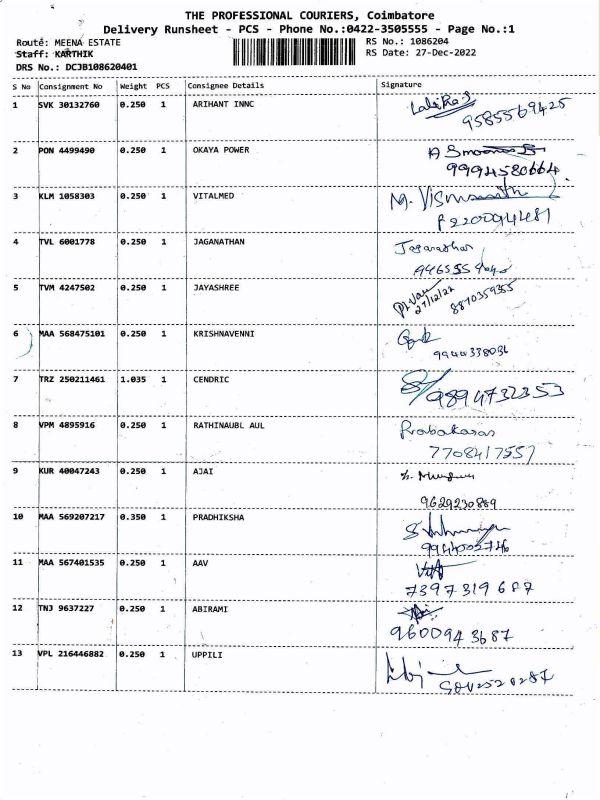 THE PROFESSIONAL COURIERS, Coimbatore
Delivery Runsheet - PCS - Phone No.:0422-3505555 - Page No.:1
Route: MEENA ESTATE RS No.: 1086204
Staff: KARTHIK RS Date: 27-Dec-2022
DRS No.: DCJB108620401
S No Consignment No Weight PCS Consignee Details Signature
1 SVK 30132760 0.250 1 ARIHANT INNC
9585569425
2 PON 4499490 0.250 1 OKAYA POWER
9994580664
3 KLM 1058303 0.250 1 VITALMED M.
4 TVL 6001778 0.250 1 JAGANATHAN Jaganathan
5 TVM 4247502 0.250 1 JAYASHREE
27/12/22 8870359355
6 MAA 568475101 0.250 1 KRISHNAVENNI
9944338036
7 TRZ 250211461 1.035 1 CENDRIC
9894732353
8 VPM 4895916 0.250 1 RATHINAUBL AUL Prabakaran
7708417557
9 KUR 40047243 0.250 1 AJAI
9629230889
10 MAA 569207217 0.350 1 PRADHIKSHA
9944002746
11 MAA 567401535 0.250 1 AAV
7397319687
12 TNJ 9637227 0.250 1 ABIRAMI
9600943687
13 VPL 216446882 0.250 1 UPPILI